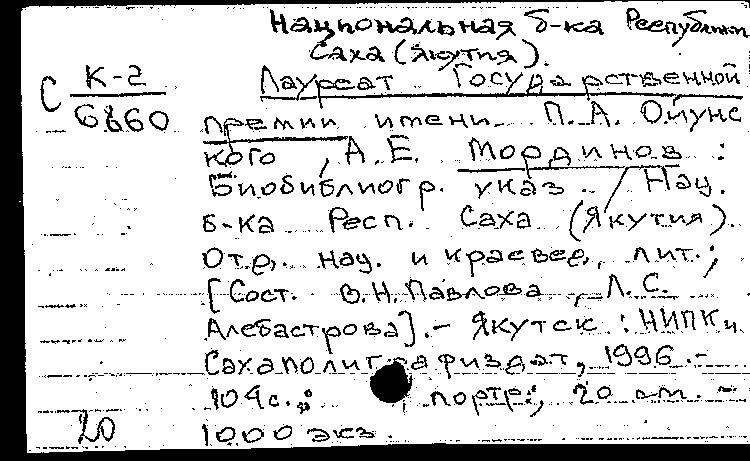 Национальная б-ка Республики
Саха (Якутия).
С К-2
6860
Лауреат Государственной
премии имени П. А. Ойунс
кого, А. Е. Мординов :
Биобиблиогр. указ. / Нац.
б-ка Респ. Саха (Якутия).
Отд. нац. и краевед. лит.;
[Сост. В. Н. Павлова, Л. С.
Алебастрова]. - Якутск : НИПК
Сахаполиграфиздат, 1996. -
104 с.; портр.; 20 см. -
20 1000 экз.